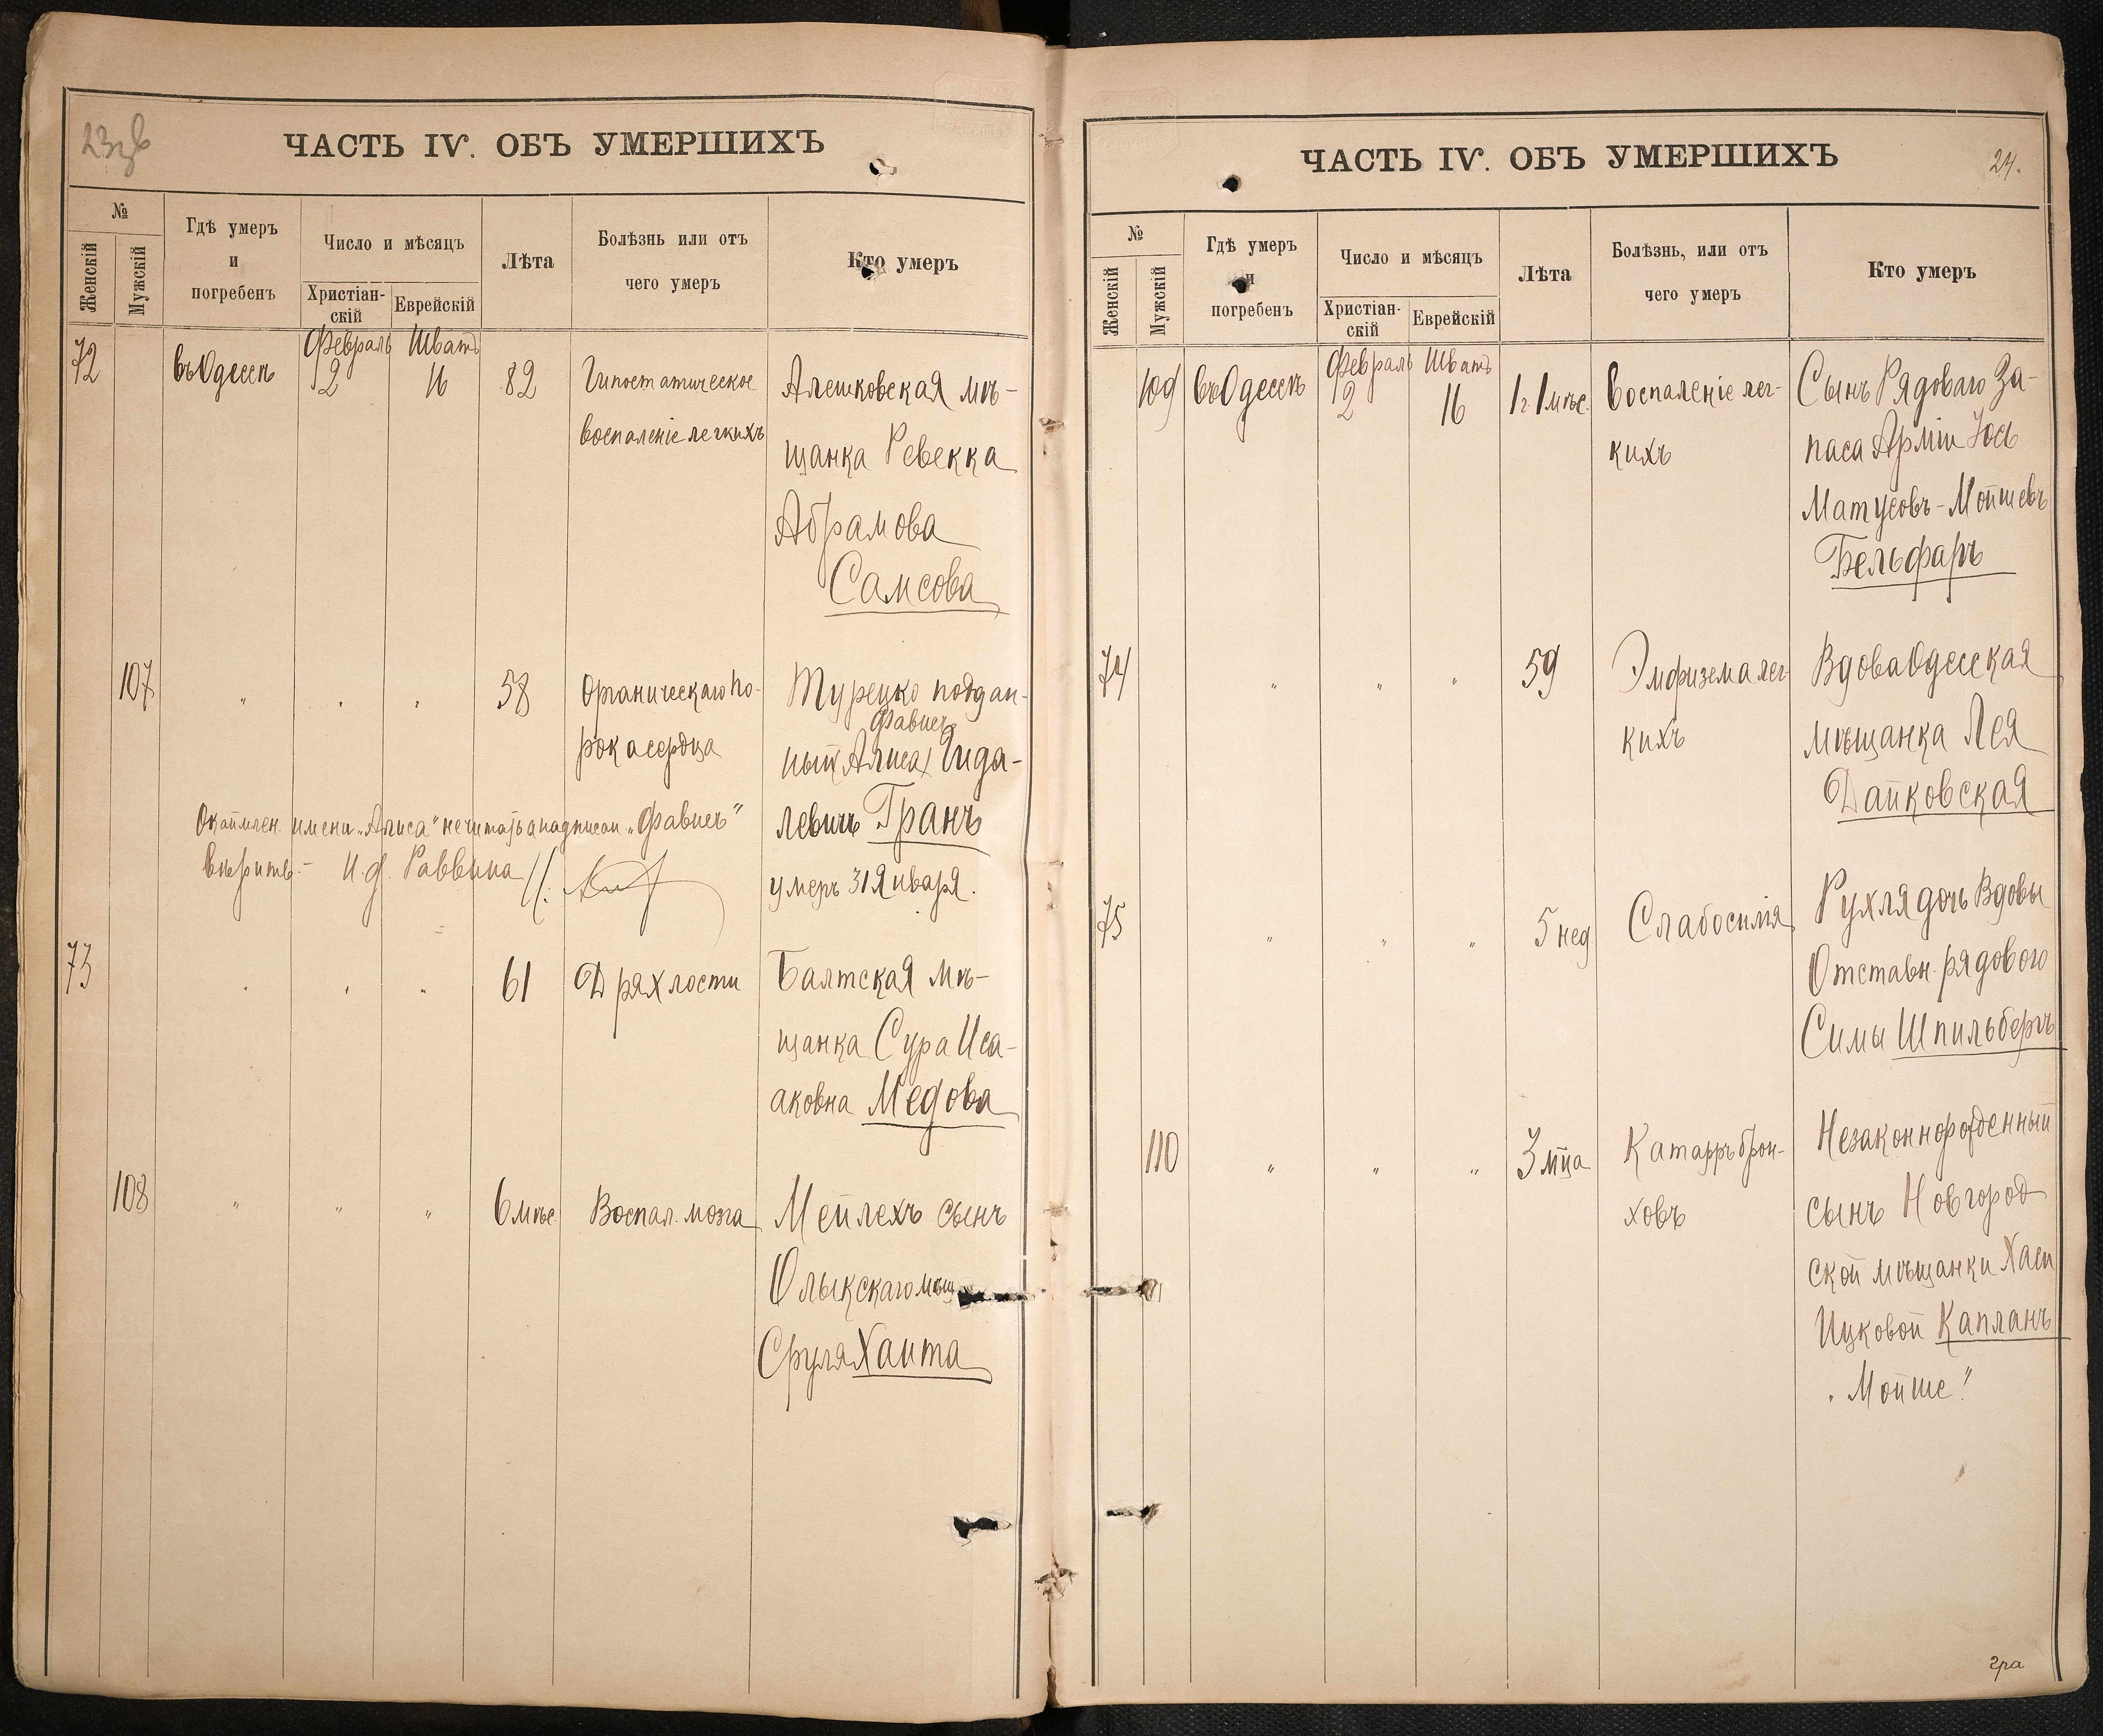 23 об
ЧАСТЬ IV. ОБЪ УМЕРШИХЪ
№
Женскій
Мужскій
Гдѣ умеръ
и
погребенъ
Число и мѣсяцъ
Христіан-
скій
Еврейскій
Лѣта
Болѣзнь или отъ
чего умеръ
Кто умеръ
72
въ Одессѣ
Февраль
2
Шватъ
16
82
Гипостатическое
воспаленіе легкихъ
Алешковская мѣ-
щанка Ревекка
Абрамова
Самсова
107
" " "
58
Органическаго по-
рока сердца
Турецко поддан-
Фавиеъ
ный Алиса Гида-
левичъ Гранъ
умеръ 31 Января.
имени „Алиса" не читать а надписан. „Фавиеъ"
вѣрить.- И. д. Раввина
73
" " "
61
Дряхлости
Балтская мѣ-
щанка Сура Иса-
аковна Медова
108
" " "
6 мѣс.
Воспал. мозга
Мейлехъ сынъ
Олыкскаго мѣщ.
Сруля Хаита
ЧАСТЬ IV. ОБЪ УМЕРШИХЪ
24.
№
Женскій
Мужскій
Гдѣ умеръ
и
погребенъ
Число и мѣсяцъ
Христіан-
скій
Еврейскій
Лѣта
Болѣзнь, или отъ
чего умеръ
Кто умеръ
109
въ Одессѣ
Февраль
2
Шватъ
16
1 г. 1 мѣс.
Воспаленіе лег-
кихъ
Сынъ Рядоваго За-
паса Арміи Іось
Матусовъ-Мойшевъ
Бельфаръ
74
" " "
59
Эмфизема лег-
кихъ
Вдова Одесская
мѣщанка Лея
Дайковская
75
" " "
5 нед
Слабосилія
Рухля дочь Вдовы
Отставн. рядового
Симы Шпильбергъ
110
" " "
3 мца
Катарръ брон-
ховъ
Незаконнорожденный
сынъ Новгород
ской мѣщанки Хаси
Ицковой Капланъ
„Мойше"